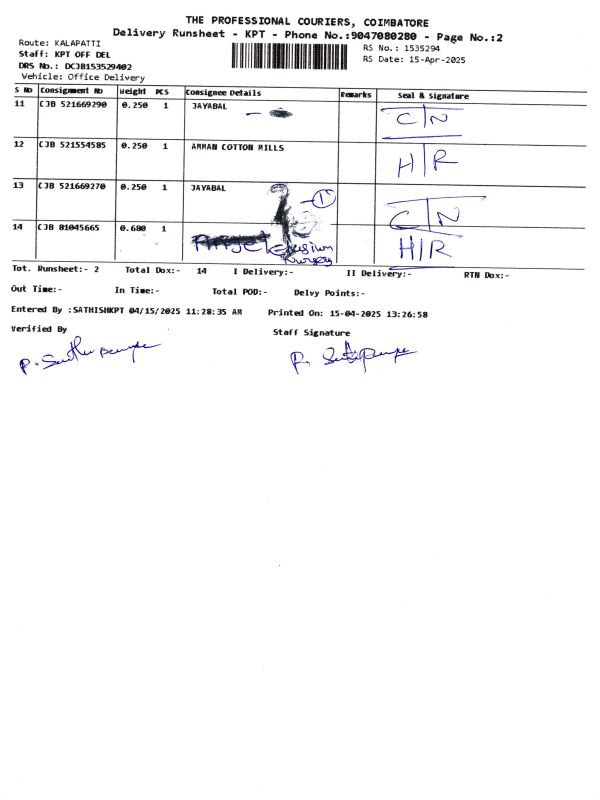 THE PROFESSIONAL COURIERS, COIMBATORE
Delivery Runsheet - KPT - Phone No.:9047080280 - Page No.:2
Route: KALAPATTI
Staff: KPT OFF DEL
DRS No.: DCJB153529402
Vehicle: Office Delivery
RS No.: 1535294
RS Date: 15-Apr-2025
S No Consignment No Weight PCS Consignee Details Remarks Seal & Signature
11 CJB 521669290 0.250 1 JAYABAL C/N
12 CJB 521554585 0.250 1 AMMAN COTTON MILLS H/R
13 CJB 521669270 0.250 1 JAYABAL 1 C/N
14 CJB 81045665 0.680 1 H/R
Tot. Runsheet:- 2 Total Dox:- 14 I Delivery:- II Delivery:- RTN Dox:-
Out Time:- In Time:- Total POD:- Delvy Points:-
Entered By :SATHISHKPT 04/15/2025 11:28:35 AM Printed On: 15-04-2025 13:26:58
Verified By Staff Signature